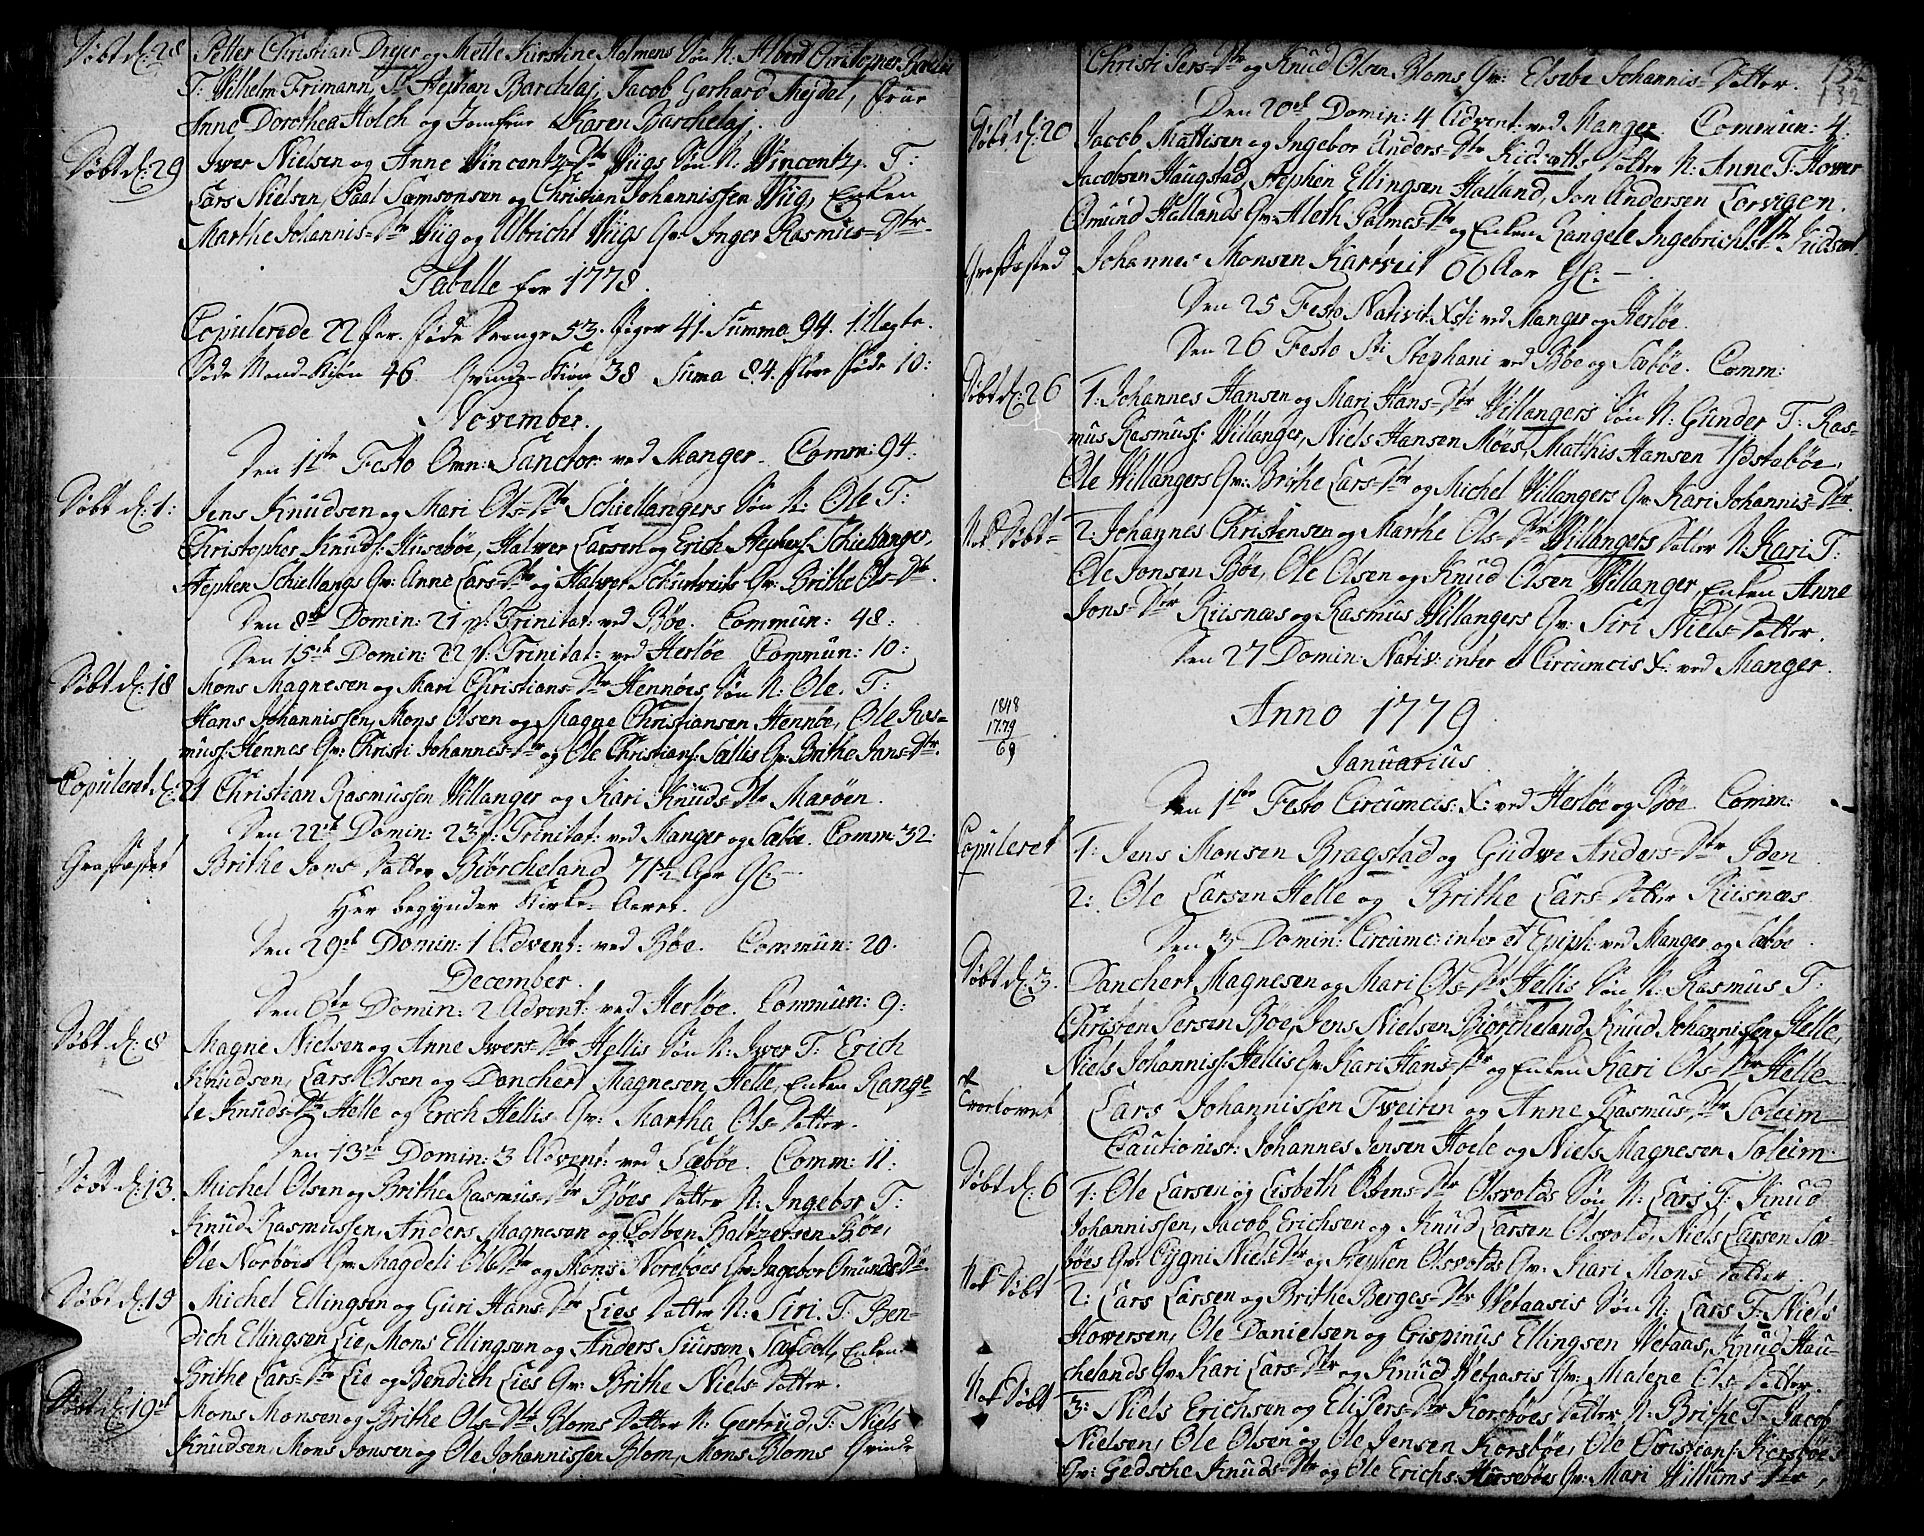 Døbt d: 28 Petter Christian Drejer og Mette Kirstine Holmens Søn N: Albert Christopher
T: Wilhelm Frimann, Sr Stephan Barchlaj, Jacob Gerhard Mejdel, frue
Anne Dorothea Holch og Jomfrue Karen Barchelaj.
Døbt d: 29 Iver Nielsen og Anne Vincentz-Dtr Viigs Søn N: Vincentz. T:
Lars Nielsen, Paal Samsonsen og Christian Johannissen Viig, Enken
Marthe Johannis-Dtr Viig og Albricht Viigs Qv: Inger Rasmus-Dtr
Tabelle for 1778.
Copulerede 22 Par. fødde Drenge 53. Piger 41. Summa 94. 1 Uægte.
Døde Mand-Kiøn 46. Qvinde-Kiøn 38 Suma 84. flere fødde 10:
November.
Den 1ste Festo Omn: Sanctor: ved Manger. Comm: 94.
Døbt d: 1: Jens Knudsen og Mari Ols-Dtr Schiellangers Søn N: Ole T:
Christopher Knuds: Husebøe, Halver Larsen og Erich Stephens: Schiellanger,
Stephen Schiellangs Qv: Anne Lars-Dtr og Halver Qv: Brithe Ols-Dtr.
Den 8de Domin: 21 p: Trinitat: ved Bøe. Commun: 48:
Den 15de Domin: 22 p: Trinitat: ved Herløe Commun: 10:
Døbt d: 18 Mons Magnesen og Mari Christians-Dtr Hennøes Søn N: Ole. T:
Hans Johannissen, Mons Olsen og Magne Christiansen Hennøe, Ole Ras-
muss: Hennes Qv: Christi Johannes-Dtr og Ole Christians: Sællis Qv: Brithe Jans-Dtr.
Copuleret d: 21 Christian Rasmussen Villanger og Kari Knuds-Dtr Marøen.
Den 22de Domin: 23 p: Trinitat: ved Manger og Sæbøe. Comm: 32:
Graffæstet Brithe Jons-Datter Biørcheland 71½ Aar Gl:
Her begynder Kirke-Aaret.
Den 29de Domin: 1 Advent: ved Bøe. Commun: 20.
December.
Den 6te Domin: 2 Advent: ved Herløe. Commun: 9:
Døbt d: 8 Magne Nielsen og Anne Ivers-Dtr Hellis Søn N: Iver T: Erich
Knudsen, Lars Olsen og Danchert Magnesen Helle, Enken Range-
le Knuds-Dtr Helle og Erich Hellis Qv: Martha Ols-Datter.
Den 13de Domin: 3 Advent: ved Sæbøe. Comm: 11:
Døbt d: 13. Michel Olsen og Brithe Rasmus-Dtr Bøes Datter N: Ingebor T:
Knud Rasmussen, Anders Magnesen og Colben Baltzersen Bøe,
Ole Norbøes Qv: Magdeli Ols Dtr og Mons Norebøes Qv: Ingebor Omunds-Dtr.
Døbt d: 19 Michel Ellingsen og Guri Hans-Dtr Lies Datter N: Siri. T: Ben-
dich Ellingsen Lie, Mons Ellingsen og Anders Siursen, Enken
Brithe Lars-Dtr Lie og Bendich Lies Qv: Brithe Niels-Datter.
Døbt d: 19de Mons Monsen og Brithe Ols-Dtr Bloms Datter N: Gertrud, T: Niels
Knudsen, Mons Jonsen og Ole Johannissen Blom, Mons Bloms Qvinde
132
132
Christi Pers-Dtr og Knud Olsen Bloms Qv: Elsebe Johannis-Datter.
Den 20de Domin: 4 Advent: ved Manger Commun: 4:
Døbt d: 20 Jacob Mattisen og Ingebor Anders-Dtr Datter N: Anne T: Hover
Jacobsen Haugstad, Stephen Ellingsen Halland, Jon Andersen Torvigen.
Omund Hallands Qv: Aleth Palmes-Dtr og Enken Rangele Ingebrichts-Dtr
Graffæsted Johannes Monsen Karrveit 66 Aar Gl:
Den 25 Festo Nativit. Xsti ved Manger og Herløe.
Den 26 Festo Sti Stephani ved Bøe og Sæbøe. Comm:
Døbt d: 26 1: Johannes Hansen og Mari Hans-Dtr Villangers Søn N: Gunder T: Ras-
mus Rasmuss: Villanger, Niels Hansen Møes, Matthis Hansen Ydstebøe,
Ole Villangers Qv: Brithe Lars-Dtr og Michel Villangers Qv: Kari Johannis-Dtr.
Nok Døbt 2: Johannes Christensen og Marthe Ols-Dtr Villangers Datter N: Kari T:
Ole Jonsen Bøe, Ole Olsen og Knud Olsen Villanger, Enken Anne
Jons-Dtr Riisnæs og Rasmus Villangers Qv: Siri Niels-Datter.
Den 27 Domin: Nativ: inter et Circumcis X: ved Manger.
1848
1779
69
Anno 1779
Januarius
Den 1ste Festo Circumcis: X: ved Herløe og Bøe. Comm:
Copuleret 1: Jens Monsen Bragstad og Gudve Anders-Dtr Iden
2: Ole Larsen Helle og Brithe Lars-Datter Riisnæs
Den 3 Domin: Circumc: inter et Epiph: ved Manger og Sæbøe.
Døbt d: 3. Danchert Magnesen og Mari Ols-Dtr Hellis Søn N: Rasmus T:
Christen Persen Bøe, Jens Nielsen Biørcheland, Knud Johannissen Helle,
Niels Johanniss: Hellis Qv: Kari Hans-Dtr og Enken Kari Ols-Dtr Helle
Trorlovet Lars Johannissen Tveiten og Anne Rasmus-Dtr Soleim
Cautionist: Johannes Jensen Hoele og Niels Magnesen Soleim
Døbt d: 6 1: Ole Larsen og Lisbeth Ostens-Dtr Olsvolds Søn N: Lars T: Knud
Johannissen, Jacob Erichsen og Knud Larsen Olsvold, Niels Larsen Sæ-
bøes Qv: Cygni Niels Dtr og Stephen Olsvolds Qv: Kari Mons-Datter.
Nok Døbt 2: Lars Larsen og Brithe Berges-Dtr Vetaasis Søn N: Lars T: Niels
Hoversen, Ole Danielsen og Crispinus Ellingsen Vetaas, Knud Hau-
chelands Qv: Kari Lars-Dtr og Knud Vetaasis Qv: Malene Ols-Datter.
Nok Døbt 3: Niels Erichsen og Eli Pers-Dtr Korsbøes Datter N: Brithe T: Jacob
Nielsen, Ole Olsen og Ole Jensen Korsbøe, Ole Christians: Korsbøes
Qv: Gedsche Knuds-Dtr og Ole Erichs: Husebøes Qv: Mari Willums-Dtr,